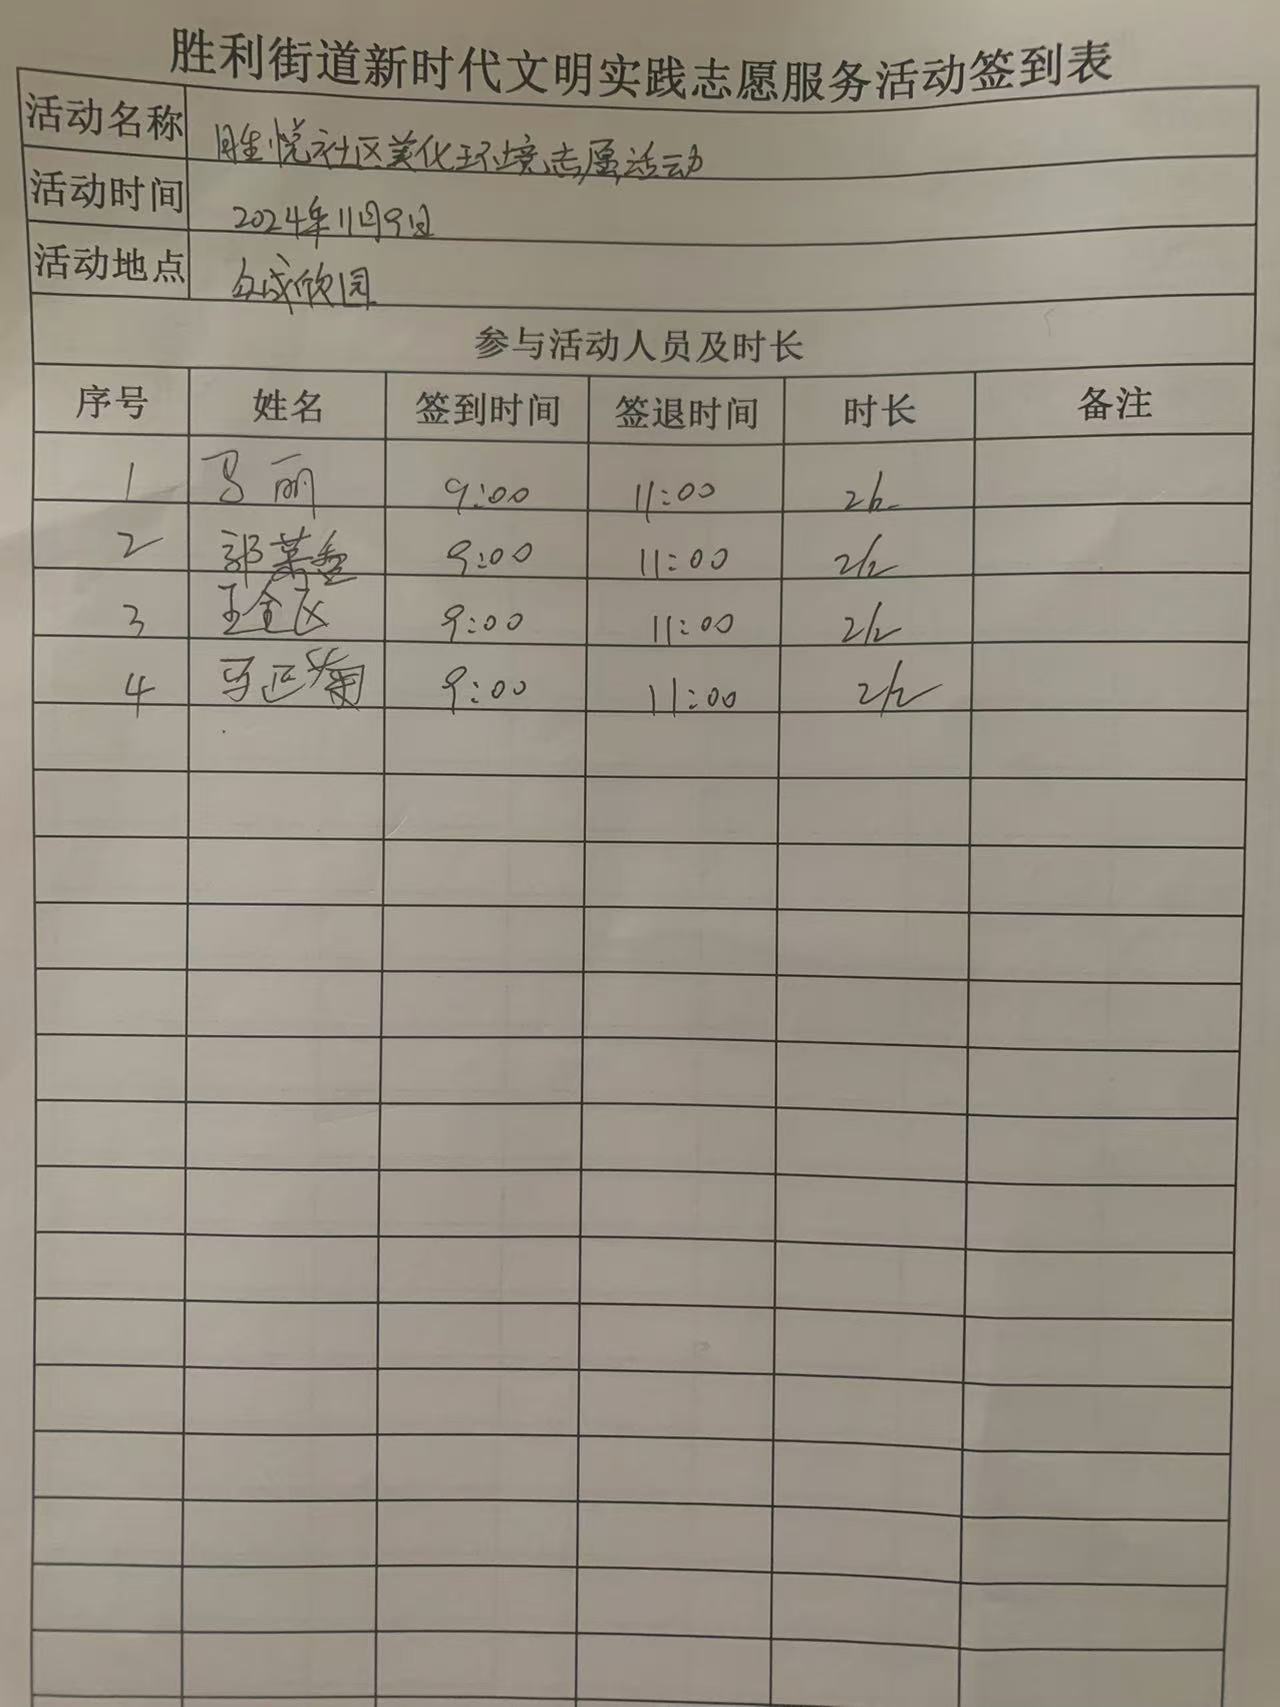 胜利街道新时代文明实践志愿服务活动签到表
活动名称 胜悦社区美化环境志愿活动
活动时间 2024年11月9日
活动地点 众成欣园
参与活动人员及时长
序号 姓名 签到时间 签退时间 时长 备注
1 马丽 9:00 11:00 2h
2 郭 9:00 11:00 2h
3 王全 9:00 11:00 2h
4 马 菊 9:00 11:00 2h